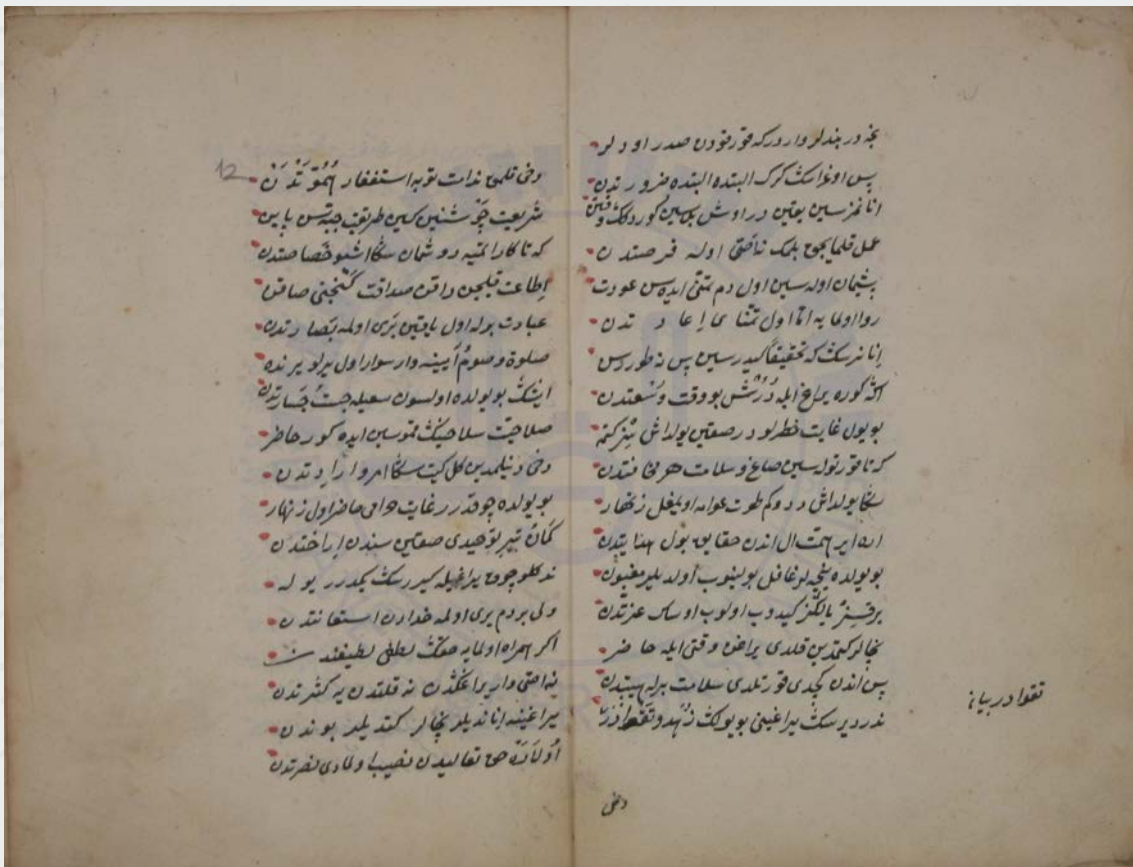 نجه دربندلر واردر كه قورقودن صدر اودلر
پس اوغراسك كرك البته ده البته ده ضرورتدن
انانمزسين يقين دراوش بله سين كوردلك وقتين
عمل قلمايجق بلمك نه اصّى اوله فرصتدن
پشيمان اوله سين اول دم تمنّى ايده سن عودت
روا اولمايه اتا اول تمنّاى اعادتدن
انانرسك كه تحقيقا كيدرسين پس نه طوررسن
اكا كوره يراغ ايله دُرُش بو وقت وسعتدن
بو يول غايت خطرلودر صقين يولداشسز كتمه
كه تا قورتوله سين صاغ و سلامت هر مخافتدن
سكا يولداش ددوكم طوت عوامه اويمغل زنهار
اره اير همت ال اندن حقايق بول عنايتدن
بو يولده نيجه لر غافل بولينوب اولديلر مغبون
يالكز كيدوب اولوب عزتدن
نجه لر كتمدين قلدى يراغن وقتى ايله حاضر
پس اندن كچدى قورتلدى سلامت برله هيبتدن
ندر ديرسك يراغينى بو يولك زهد و تقوادر
تقوادر بيانه
دخى
12
دخى قلمق ندامت توبه استغفار
شريعت جوشنين كيين طريقت جبّه سن يابين
كه تا كار اتميه دوشمان سكا اشبو خصاصتدن
اطاعت قيلجن داقن صداقت كنجنى صاقن
عبادت برله اول ياقين برى اولمه بصارتدن
صلوة و صوم آيينه وار سوار اول يرلو يرنده
ايشك بو يولده اولسون سعيله چست جسارتدن
صلاحيت سلاحينك قموسين ايده كور حاضر
دخى دنيلمدين كل كيت سكا امر و ارادتدن
بو يولده چوقدرر غايت حرامى حاضر اول زنهار
كمان تير توحيدى صقين سندن ايراختدن
نه كلو چوق يراغيله كيررسك كيدرر يوله
ولى بر دم برى اولمه خدادن استعانتدن
اكر همراه اولمايه حقك لطفى لطيفندن
نه اصّى وار يراغكدن نه قلتدن نه كثرتدن
يراغينه اناندیلر نجه لر كتديلر بوندن
اولاره حق تعاليدن نصيب اولمادى نصرتدن